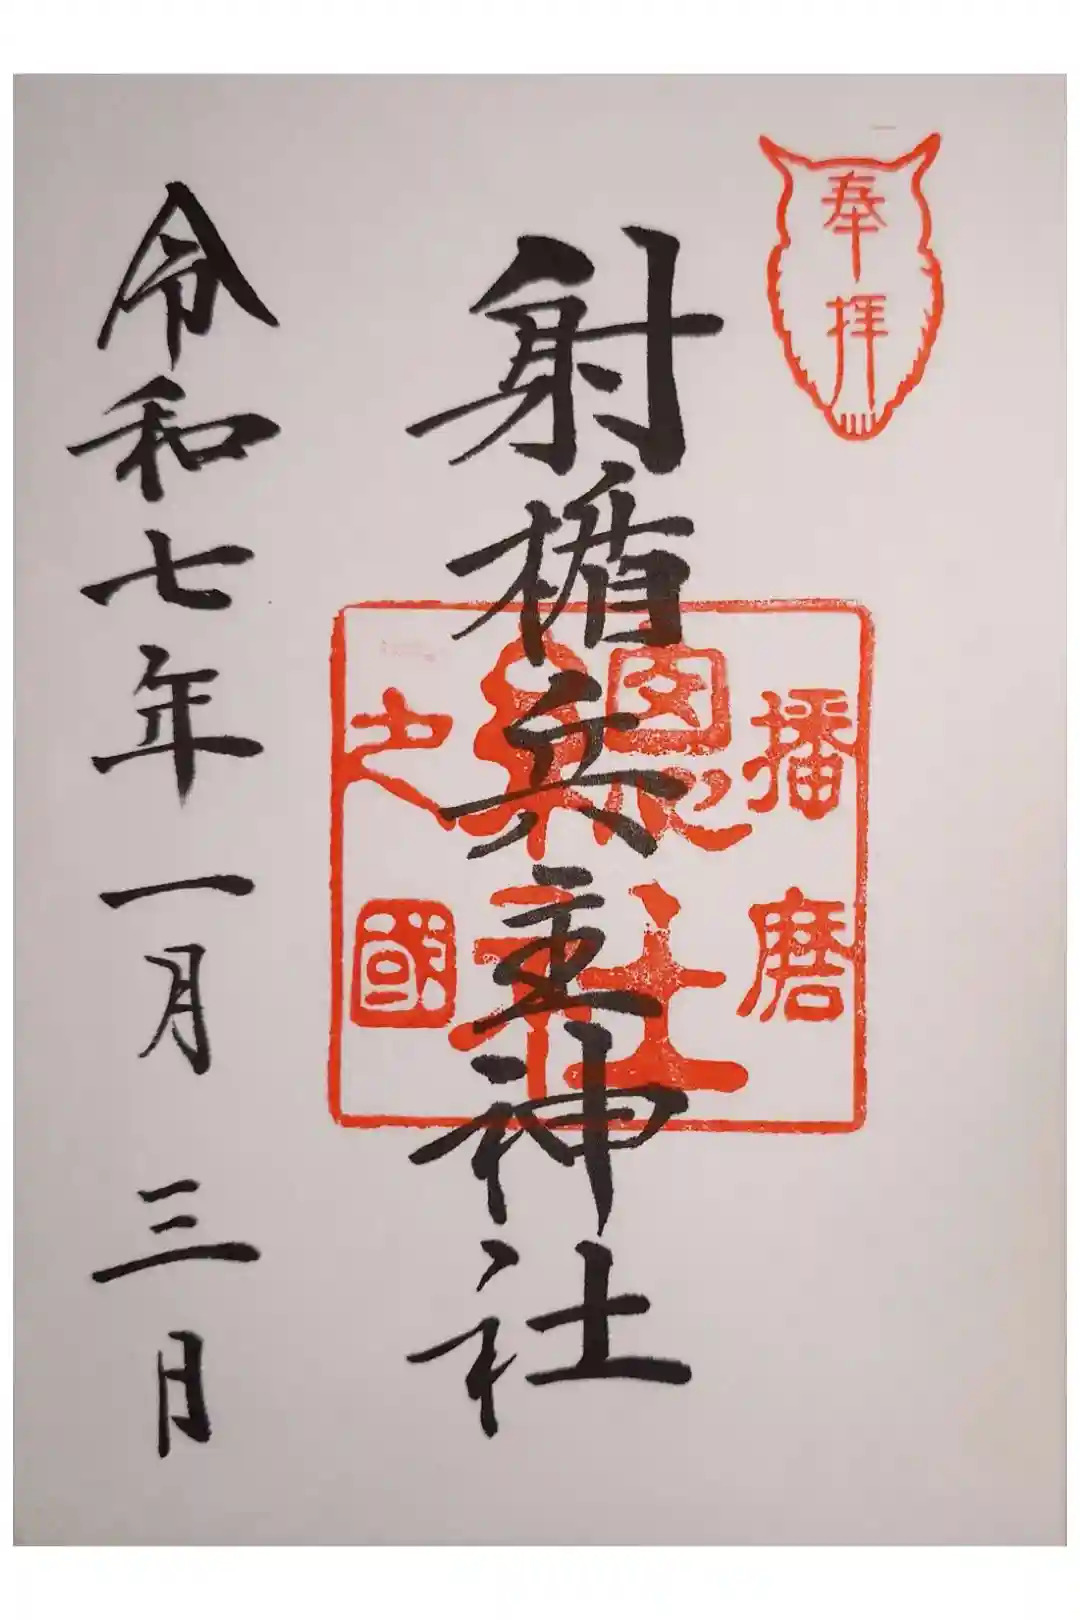 奉拝
射楯兵主神社
播磨
之國
總社
令和七年一月三日